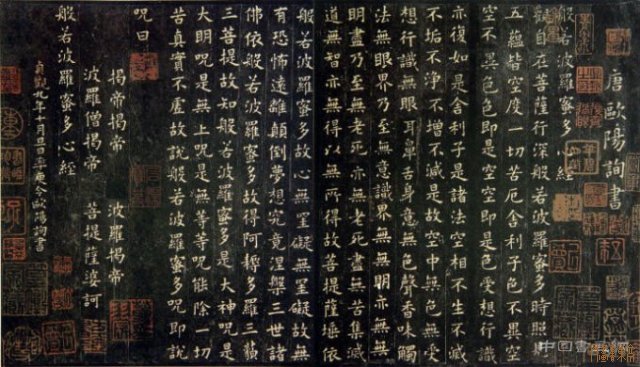 唐歐陽詢書
般若波羅蜜多心經
觀自在菩薩行深般若波羅蜜多時照見
五蘊皆空度一切苦厄舍利子色不異空
空不異色色即是空空即是色受想行識
亦復如是舍利子是諸法空相不生不滅
不垢不淨不增不減是故空中無色無受
想行識無眼耳鼻舌身意無色聲香味觸
法無眼界乃至無意識界無無明亦無無
明盡乃至無老死亦無老死盡無苦集滅
道無智亦無得以無所得故菩提薩埵依
般若波羅蜜多故心無罣礙無罣礙故無
有恐怖遠離顛倒夢想究竟涅槃三世諸
佛依般若波羅蜜多故得阿耨多羅三藐
三菩提故知般若波羅蜜多是大神呪是
大明呪是無上呪是無等等呪能除一切
苦真實不虛故說般若波羅蜜多呪即說
呪曰
揭帝揭帝 波羅揭帝
波羅僧揭帝 菩提薩婆訶
般若波羅蜜多心經
貞觀九年十月旦日率更令歐陽詢書